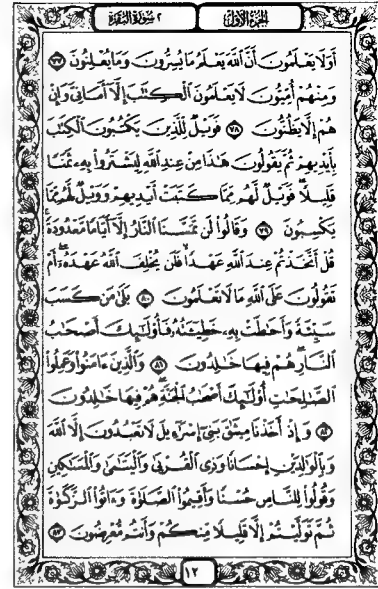 ٢ سُورَةُ البَقَرَة
الجُزْءُ الأَوَّلُ
أَوَلَا يَعْلَمُونَ أَنَّ ٱللَّهَ يَعْلَمُ مَا يُسِرُّونَ وَمَا يُعْلِنُونَ ٧٧
وَمِنْهُمْ أُمِّيُّونَ لَا يَعْلَمُونَ ٱلْكِتَٰبَ إِلَّآ أَمَانِىَّ وَإِنْ
هُمْ إِلَّا يَظُنُّونَ ٧٨ فَوَيْلٌ لِّلَّذِينَ يَكْتُبُونَ ٱلْكِتَٰبَ
بِأَيْدِيهِمْ ثُمَّ يَقُولُونَ هَٰذَا مِنْ عِندِ ٱللَّهِ لِيَشْتَرُوا۟ بِهِۦ ثَمَنًا
قَلِيلًا فَوَيْلٌ لَّهُم مِّمَّا كَتَبَتْ أَيْدِيهِمْ وَوَيْلٌ لَّهُم مِّمَّا
يَكْسِبُونَ ٧٩ وَقَالُوا۟ لَن تَمَسَّنَا ٱلنَّارُ إِلَّآ أَيَّامًا مَّعْدُودَةً
قُلْ أَتَّخَذْتُمْ عِندَ ٱللَّهِ عَهْدًا فَلَن يُخْلِفَ ٱللَّهُ عَهْدَهُۥٓ أَمْ
تَقُولُونَ عَلَى ٱللَّهِ مَا لَا تَعْلَمُونَ ٨٠ بَلَىٰ مَن كَسَبَ
سَيِّئَةً وَأَحَٰطَتْ بِهِۦ خَطِيٓـَٔتُهُۥ فَأُو۟لَٰٓئِكَ أَصْحَٰبُ
ٱلنَّارِ هُمْ فِيهَا خَٰلِدُونَ ٨١ وَٱلَّذِينَ ءَامَنُوا۟ وَعَمِلُوا۟
ٱلصَّٰلِحَٰتِ أُو۟لَٰٓئِكَ أَصْحَٰبُ ٱلْجَنَّةِ هُمْ فِيهَا خَٰلِدُونَ
٨٢ وَإِذْ أَخَذْنَا مِيثَٰقَ بَنِىٓ إِسْرَٰٓءِيلَ لَا تَعْبُدُونَ إِلَّا ٱللَّهَ
وَبِٱلْوَٰلِدَيْنِ إِحْسَانًا وَذِى ٱلْقُرْبَىٰ وَٱلْيَتَٰمَىٰ وَٱلْمَسَٰكِينِ
وَقُولُوا۟ لِلنَّاسِ حُسْنًا وَأَقِيمُوا۟ ٱلصَّلَوٰةَ وَءَاتُوا۟ ٱلزَّكَوٰةَ
ثُمَّ تَوَلَّيْتُمْ إِلَّا قَلِيلًا مِّنكُمْ وَأَنتُم مُّعْرِضُونَ ٨٣
١٢